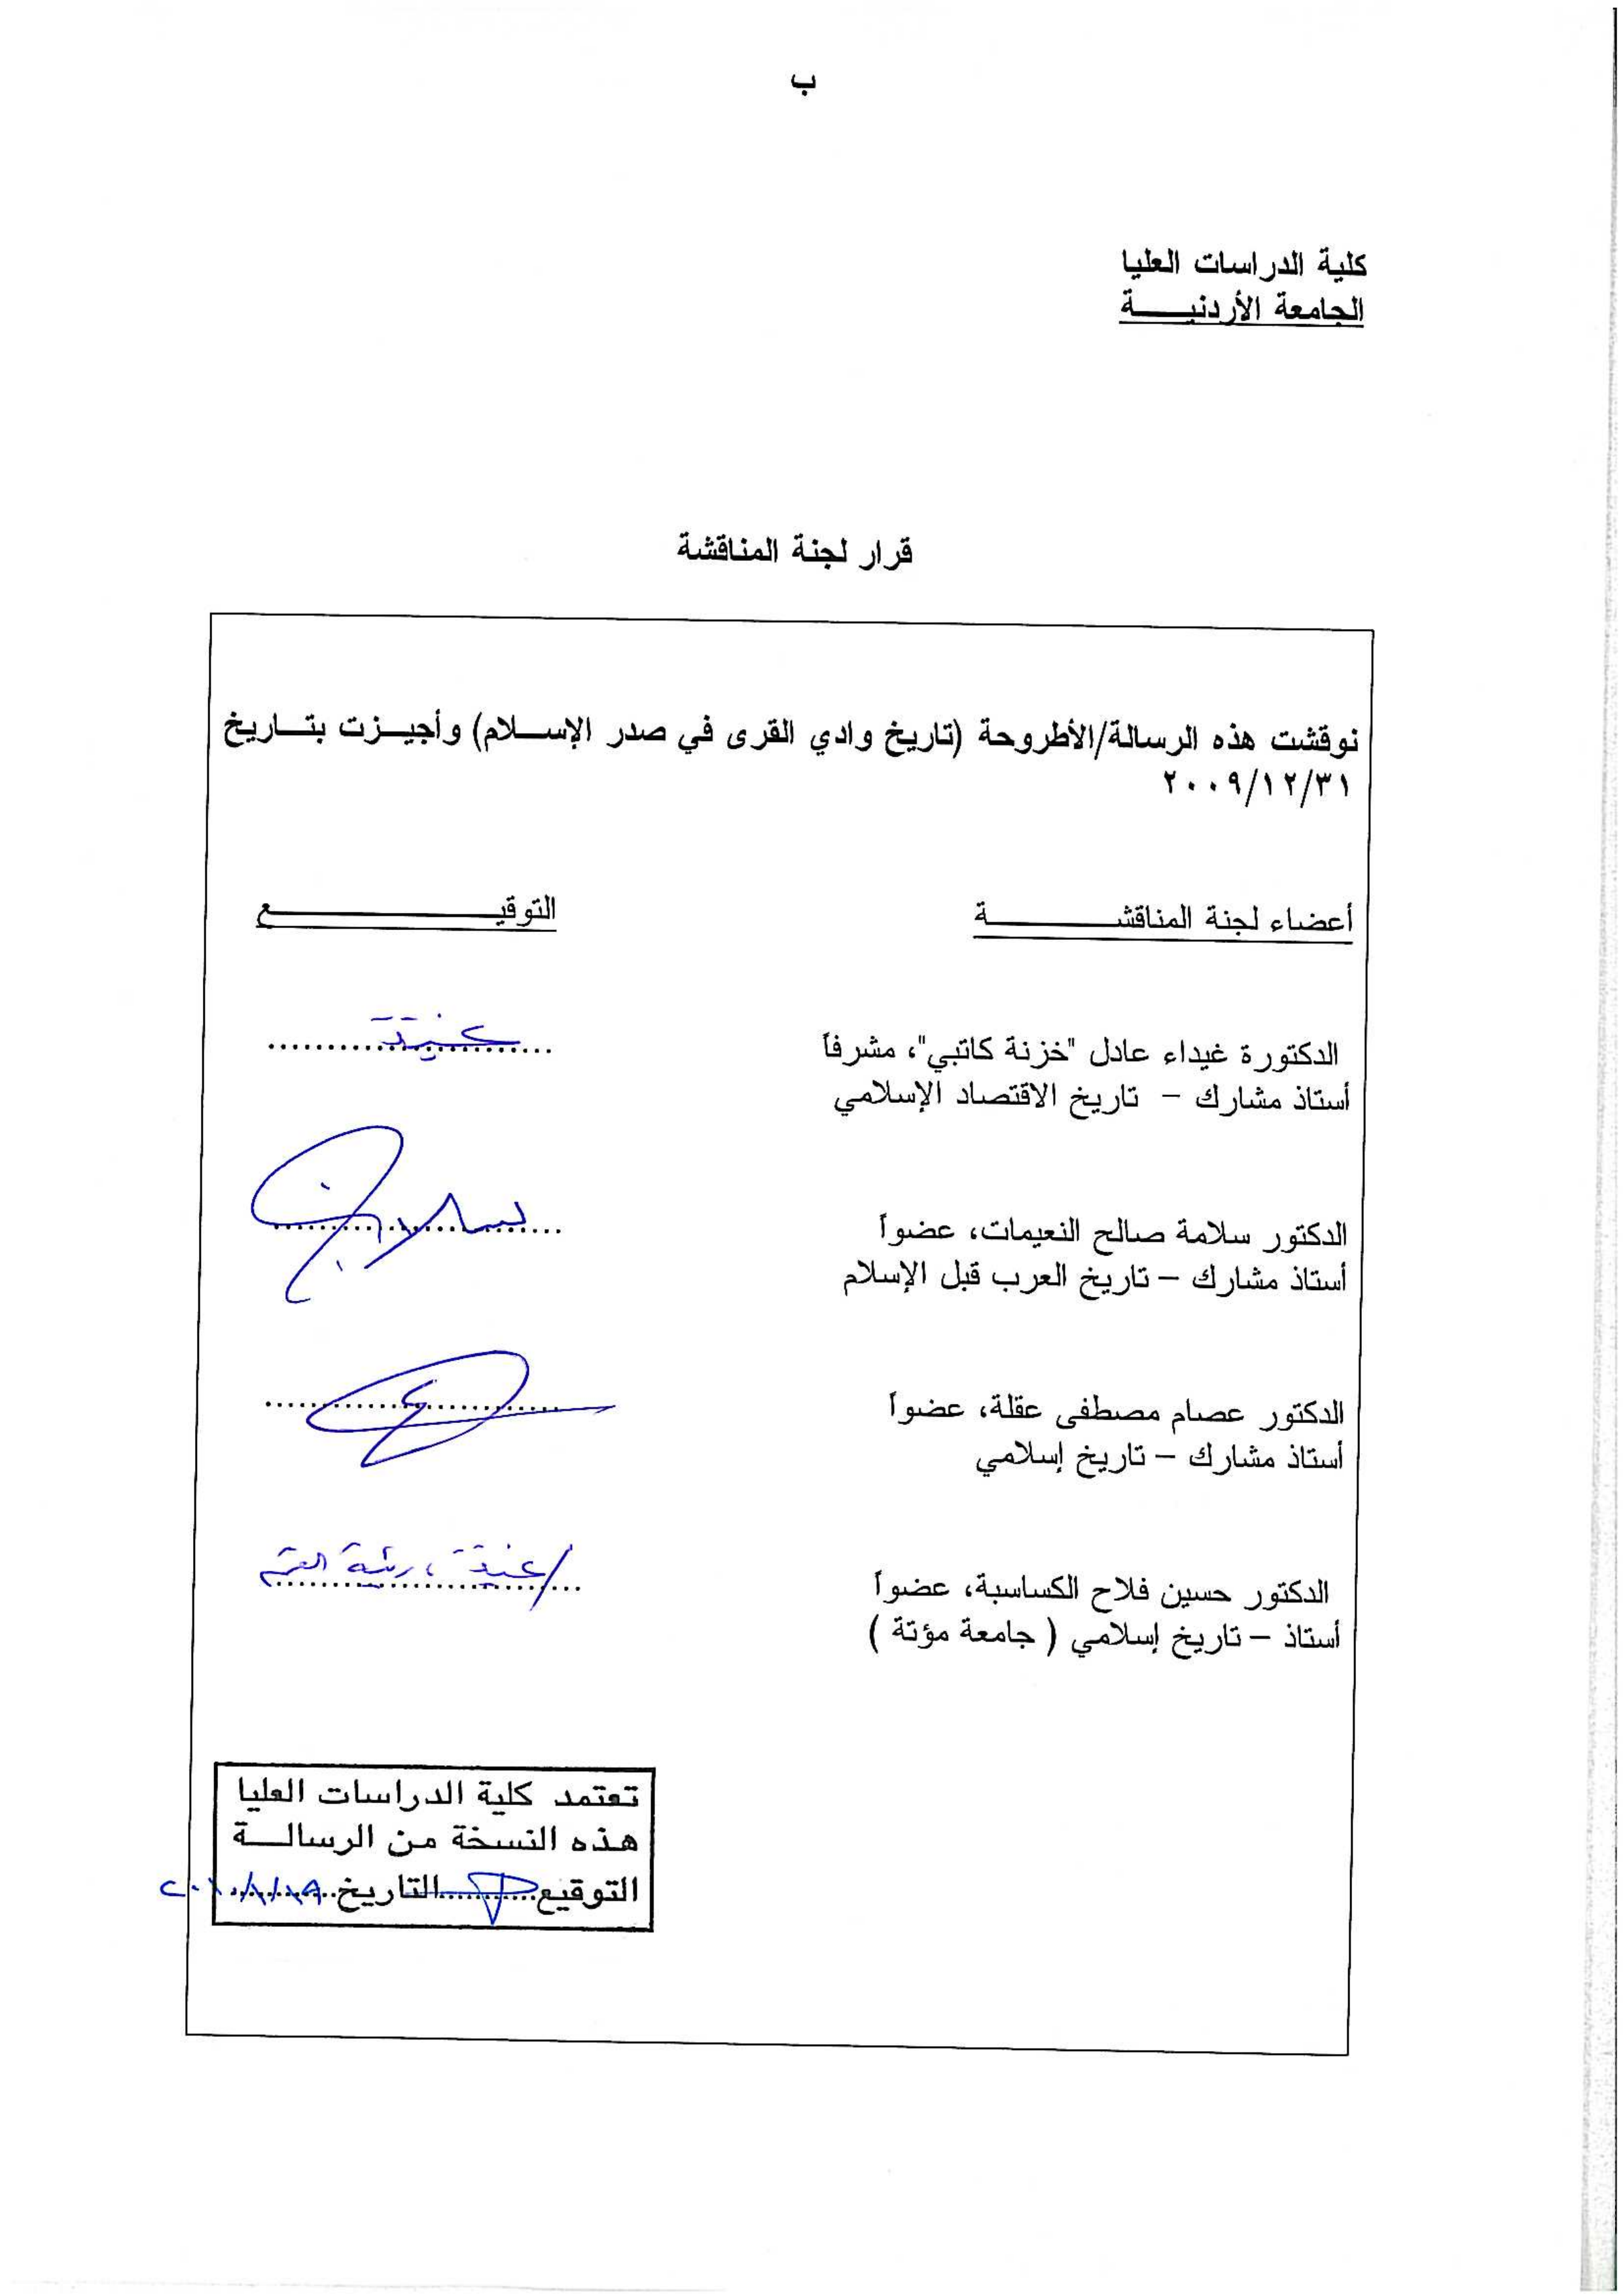 ب
كلية الدراسات العليا
الجامعة الأردنيـــــة
قرار لجنة المناقشة
نوقشت هذه الرسالة/الأطروحة (تاريخ وادي القرى في صدر الإســلام) وأجيــزت بتــاريخ
٢٠٠٩/١٢/٣١
أعضاء لجنة المناقشـــــــــة التوقيـــــــــــــــع
الدكتورة غيداء عادل "خزنة كاتبي"، مشرفاً
أستاذ مشارك – تاريخ الاقتصاد الإسلامي
الدكتور سلامة صالح النعيمات، عضواً
أستاذ مشارك – تاريخ العرب قبل الإسلام
الدكتور عصام مصطفى عقلة، عضواً
أستاذ مشارك – تاريخ إسلامي
الدكتور حسين فلاح الكساسبة، عضواً
أستاذ – تاريخ إسلامي ( جامعة مؤتة )
تعتمد كلية الدراسات العليا
هذه النسخة من الرسالــة
التوقيع............التاريخ............